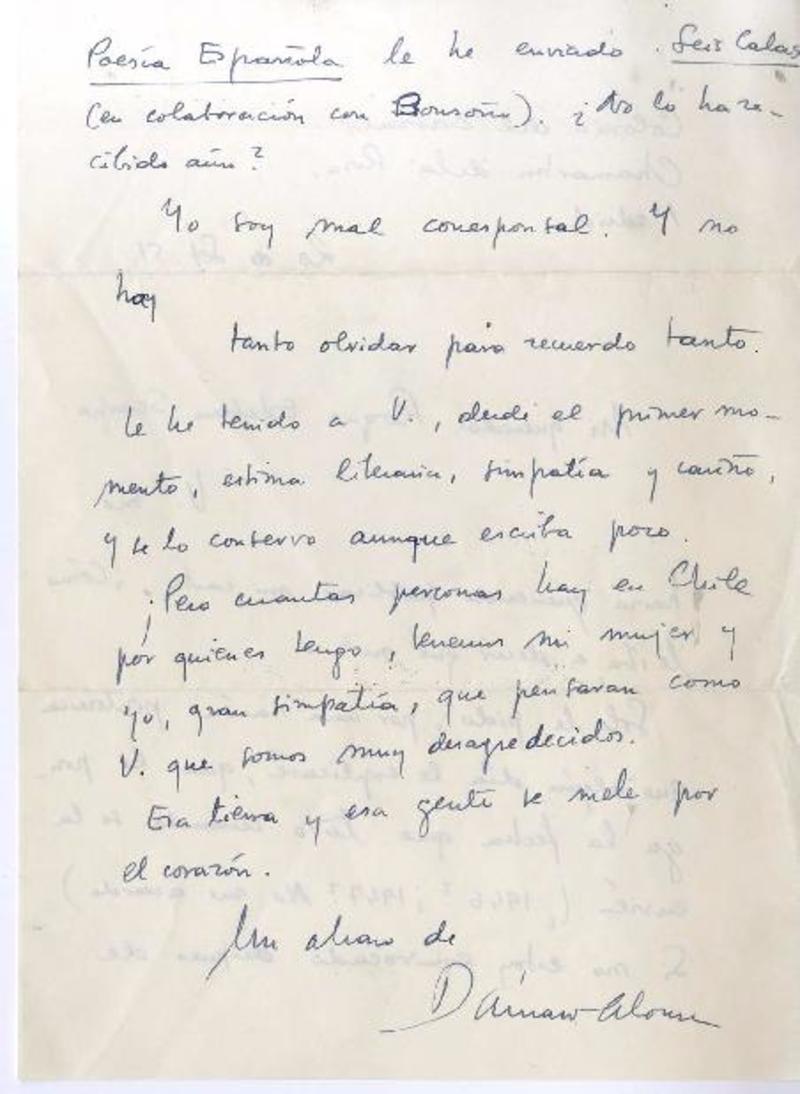 Poesía Española le he enviado Seis Calas
(en colaboración con Bousoño). ¿No lo ha re-
cibido aún?
Yo soy mal corresponsal. Y no
hay
tanto olvidar para recuerdo tanto.
Le he tenido a V., desde el primer mo-
mento, estima literaria, simpatía y cariño,
y se lo conservo aunque escriba poco.
¡Pero cuantas personas hay en Chile
por quienes tengo, tenemos mi mujer y
yo, gran simpatía, que pensaran como
V. que somos muy desagredecidos.
Esa tierra y esa gente se mete por
el corazón.
Un abrazo de
Dámaso Alonso